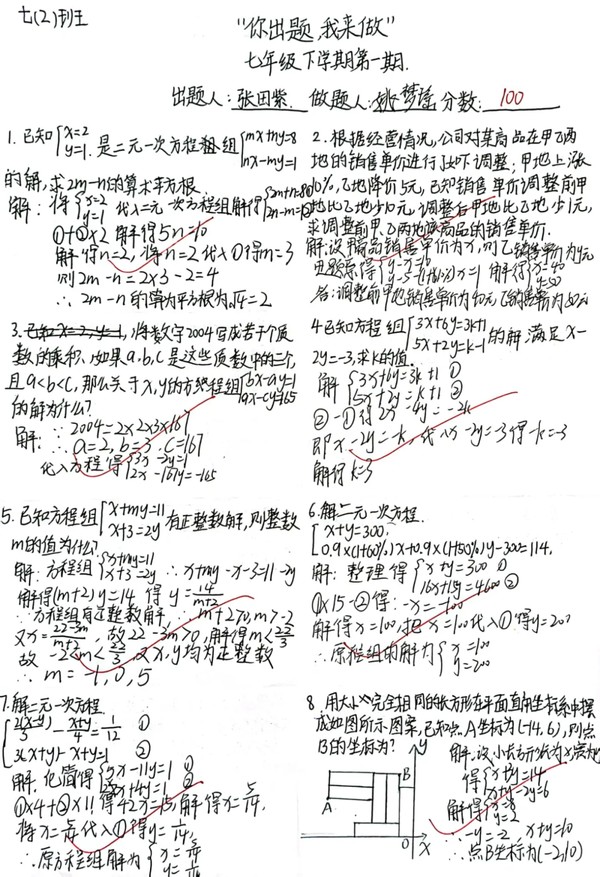 七(2)班王
"你出题,我来做"
七年级下学期第一期.
出题人:张田紫. 做题人:姚梦瑶 分数: 100
1. 已知{x=2 y=1. 是二元一次方程组{mx+ny=8 nx-my=1
的解,求2m-n的算术平方根.
解: 将{x=2 y=1 代入二元一次方程组解得{2m+n=8① 2n-m=1②
①+②×2 解得5n=10
解得n=2, 将n=2代入①得m=3
则2m-n=2×3-2=4
∴ 2m-n的算术平方根为√4=2
2. 根据经营情况,公司对某商品在甲乙两
地的销售单价进行了如下调整:甲地上涨
10%,乙地降价5元,已知销售单价调整前甲
地比乙地少10元,调整后甲地比乙地少1元,
求调整前甲乙两地该商品的销售单价.
解:设甲商品销售单价为x,则乙销售单价为y元
由题意得{y-x=10 y-5-(1+10%)x=1 解得{x=40 y=50
答:调整前甲地销售单价为40元乙销售单价为50元
3. 已知x=2,y=1, 将数字2004写成若干个质
数的乘积、如果a.b.c是这些质数中的三个,
且a<b<c, 那么关于x,y的方程组{bx-ay=1 ax-cy=165
的解为什么?
解: ∵2004=2×2×3×167
∴a=2, b=3 .C=167
代入方程得{3x-2y=1 2x-167y=-165
4已知方程组{3x+6y=3k+1 5x+2y=k-1 的解满足x-
2y=-3,求k的值.
解{3x+6y=3k+1 ① 5x+2y=k+1 ②
②-①得2x-4y=-2k
即x-2y=-k, 代入x-2y=-3得-k=-3
解得k=3
5. 已知方程组{x+my=11 x+3=2y 有正整数解,则整数
m的值为什么?
解: 方程组{x+my=11 x+3=2y ∴x+my-x-3=11-2y
解得(m+2)y=14 得 y=14/m+2
∵方程组有正整数解 ∴m+2>0,m>-2
又x=22-3m/m+2, 故22-3m>0, 解得m<22/3
故 -2<m<22/3, 又x,y均为正整数
∴ m=-1,0,5
6.解二元一次方程.
{x+y=300,
0.9×(1+60%)x+0.9×(1+50%)y-300=114.
解: 整理得{x+y=300 ① 16x+15y=4600 ②
①×15-②得: -x=-100
解得x=100,把x=100代入①得y=200
∴原方程组的解为{x=100 y=200
7.解二元一次方程
{2(x-y)/3-x+y/4=1/12 ①
3(x+y)-x+y=1 ②
解. 化简得{5x-11y=1 ① 2x+4y=1 ②
①×4+②×11得42x=15, 解得x=5/14,
将x=5/14代入①得y=1/14,
∴原方程组解为{x=5/14 y=1/14
8. 用大小完全相同的长方形在平面直角坐标系中摆
成如图所示图案,已知点A坐标为(-14,6),则点
B的坐标为?
解:设小长方形长为x,宽为y
得{x+3y=14 x+y-2y=6
解得{x=8 y=2
∴-y=-2, x+y=10
∴点B坐标为(-2,10)
A
B
y
O
x